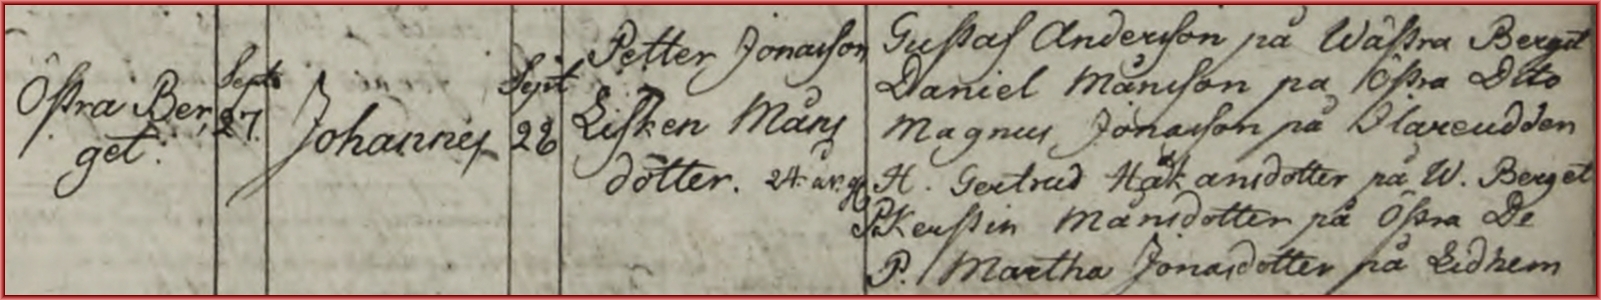 Östra Ber,
get.
Sept.
27.
Johannes
Sept
26
Petter Jonasson
Lisken Måns
dotter. 24. år. g.
Gustaf Andersson på Wästra Berget
Daniel Månsson på Östra Dito
Magnus Jonasson på
H. Gertrud Håkansdotter på W. Berget
P. Kerstin Månsdotter på Östra De
P. Martha Jonasdotter på Lidhem